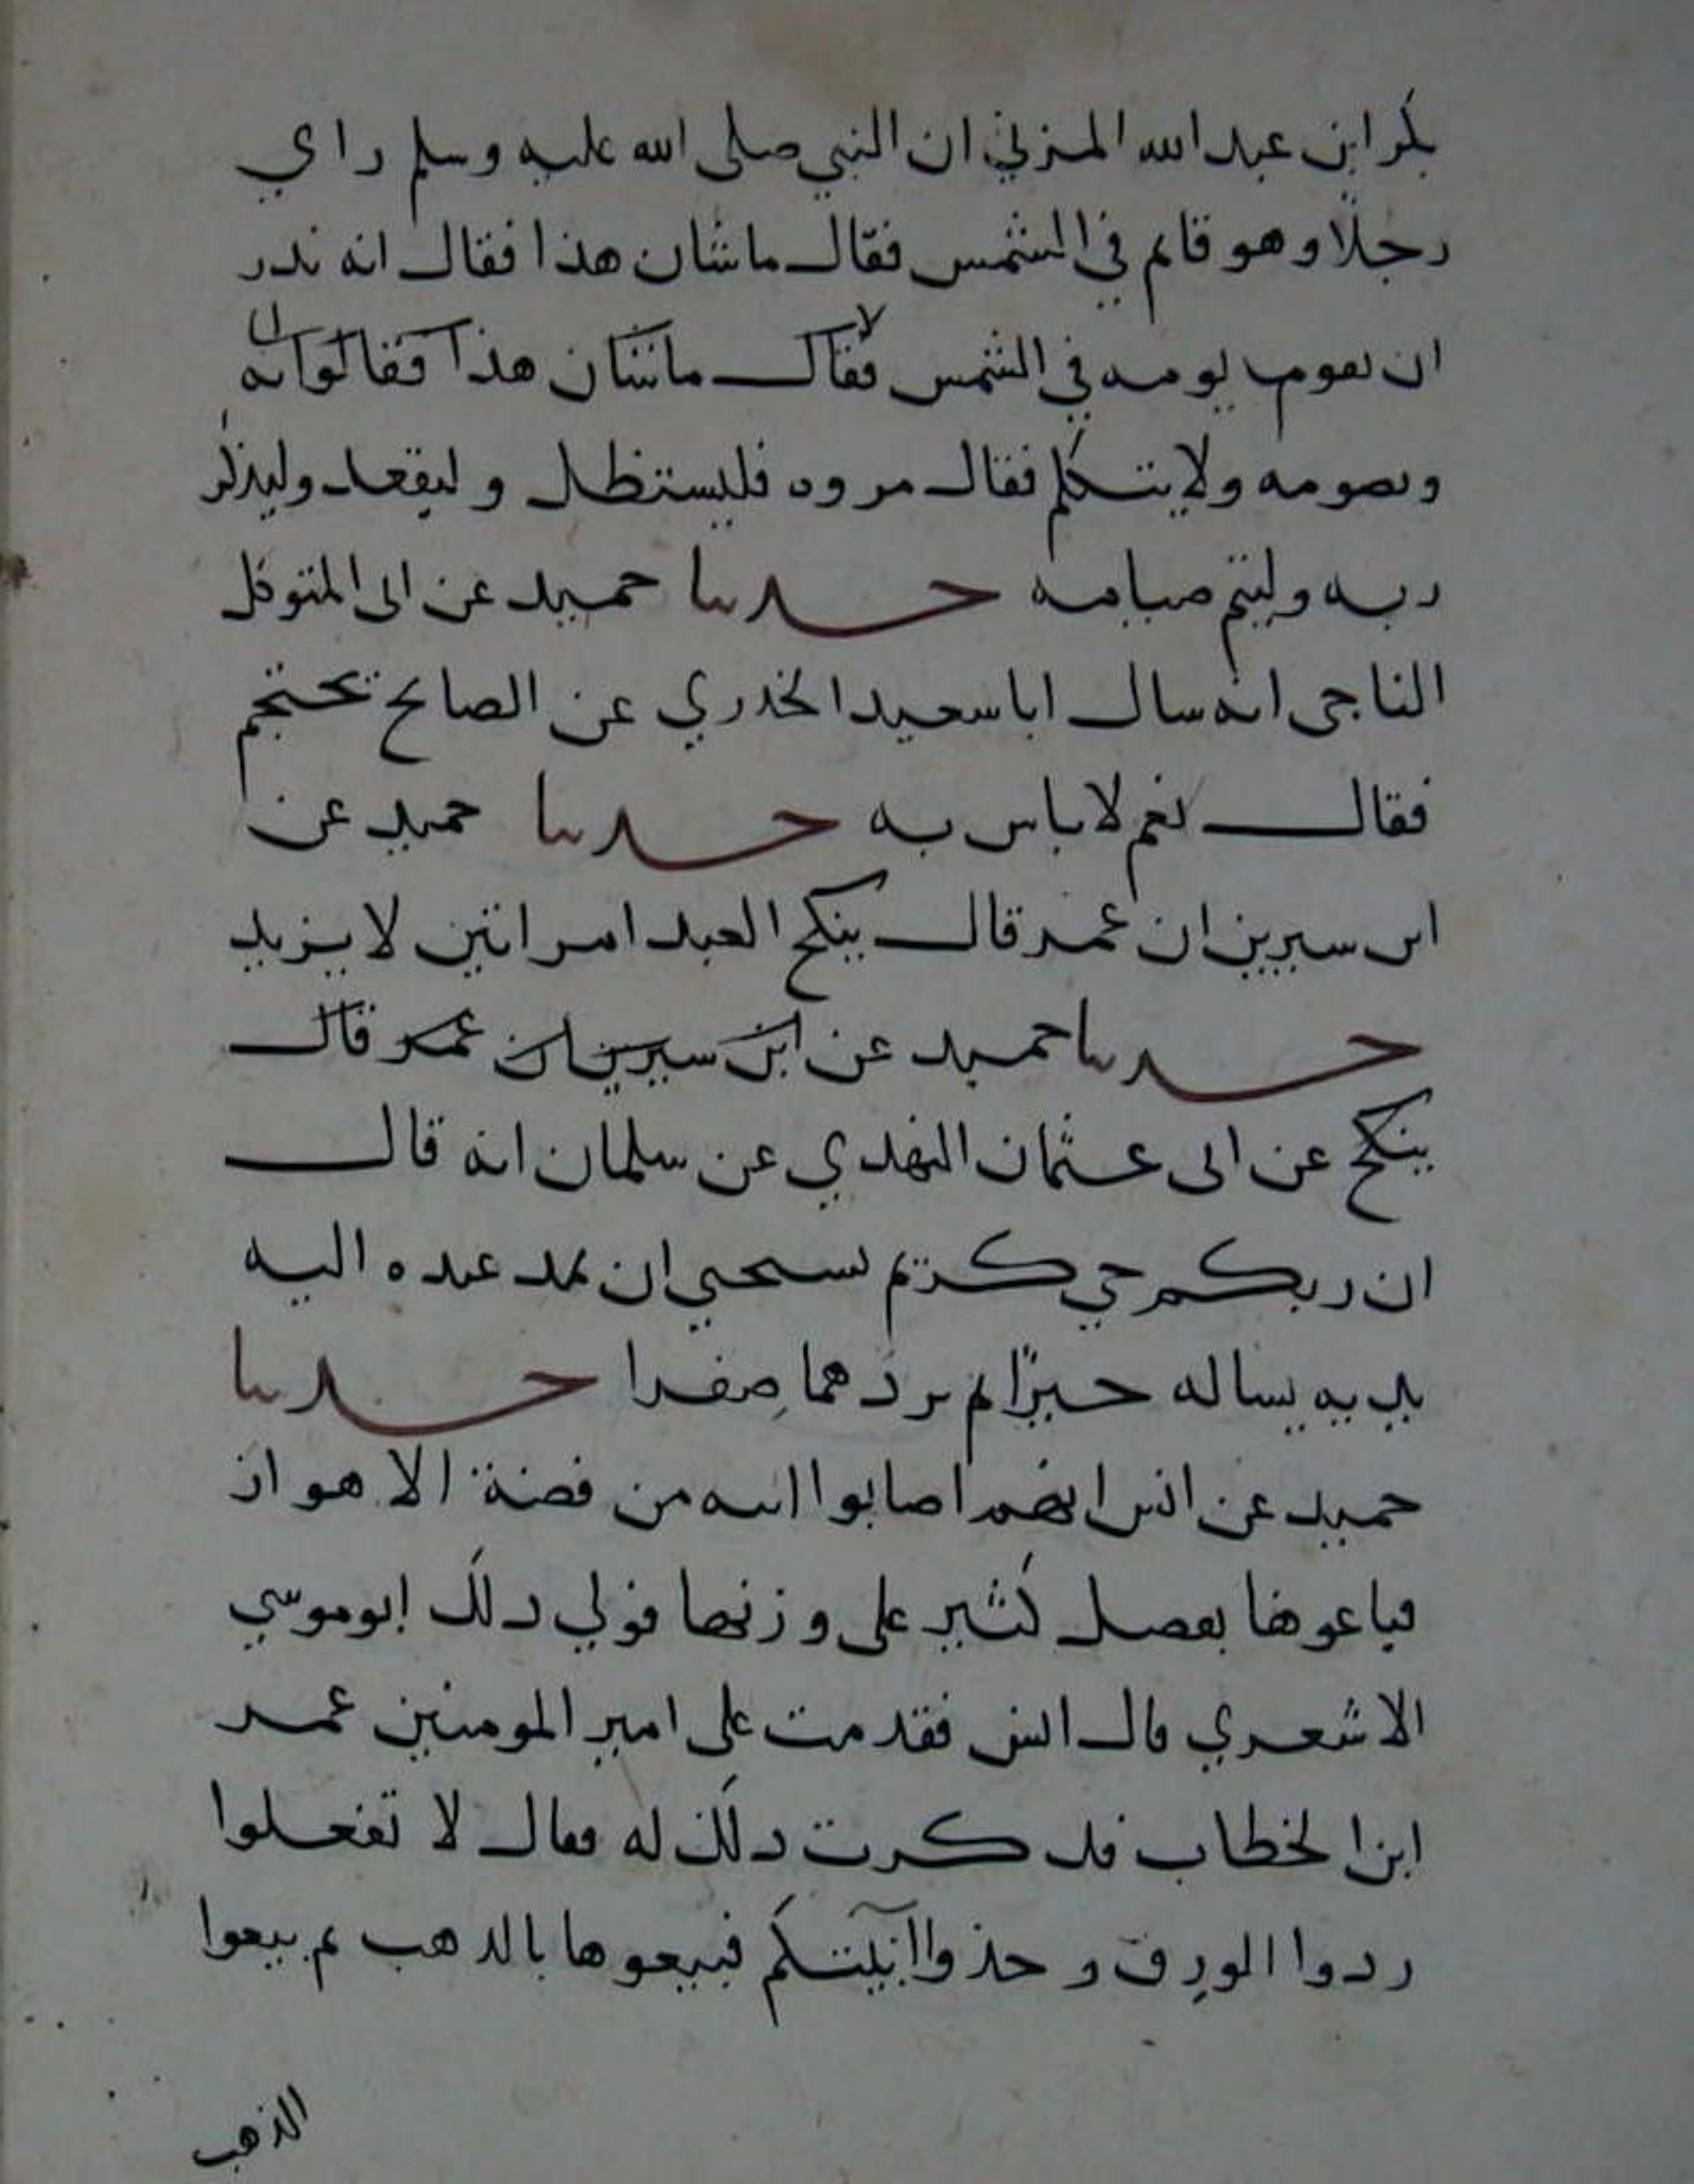 بكر ابن عبد الله المزني ان النبي صلى الله عليه وسلم راي
رجلا وهو قايم في الشمس فقال ما شان هذا فقال انه ندر
ان يقوم يومه في الشمس فقال ما شان هذا فقالوا انه
ويصومه ولا يتكلم فقال مروه فليستظل وليقعد وليذكر
ربه وليتم صيامه حدثنا حميد عن ابى المتوكل
الناجى انه سال ابا سعيد الخدري عن الصايم يحتجم
فقال نعم لا باس به حدثنا حميد عن
ابن سيرين ان عمر قال ينكح العبد امراتين لا يزيد
حدثنا حميد عن ابن سيرين ان عمر قال
ينكح عن ابى عثمان النهدي عن سلمان انه قال
ان ربكم حي كريم يستحيي ان يمد عبده اليه
يديه يساله خيرًا ثم يردهما صِفرا حدثنا
حميد عن انس انهم اصابوا انيه من فضة الاهواز
فباعوها بفضل كثير على وزنها فولي دلك ابو موسي
الاشعري قال انس فقدمت على امير المومنين عمر
ابن الخطاب فدكرت دلك له فقال لا تفعلوا
ردوا الورِق وخذوا آنيتكم فبيعوها بالدهب ثم بيعوا
الذهب